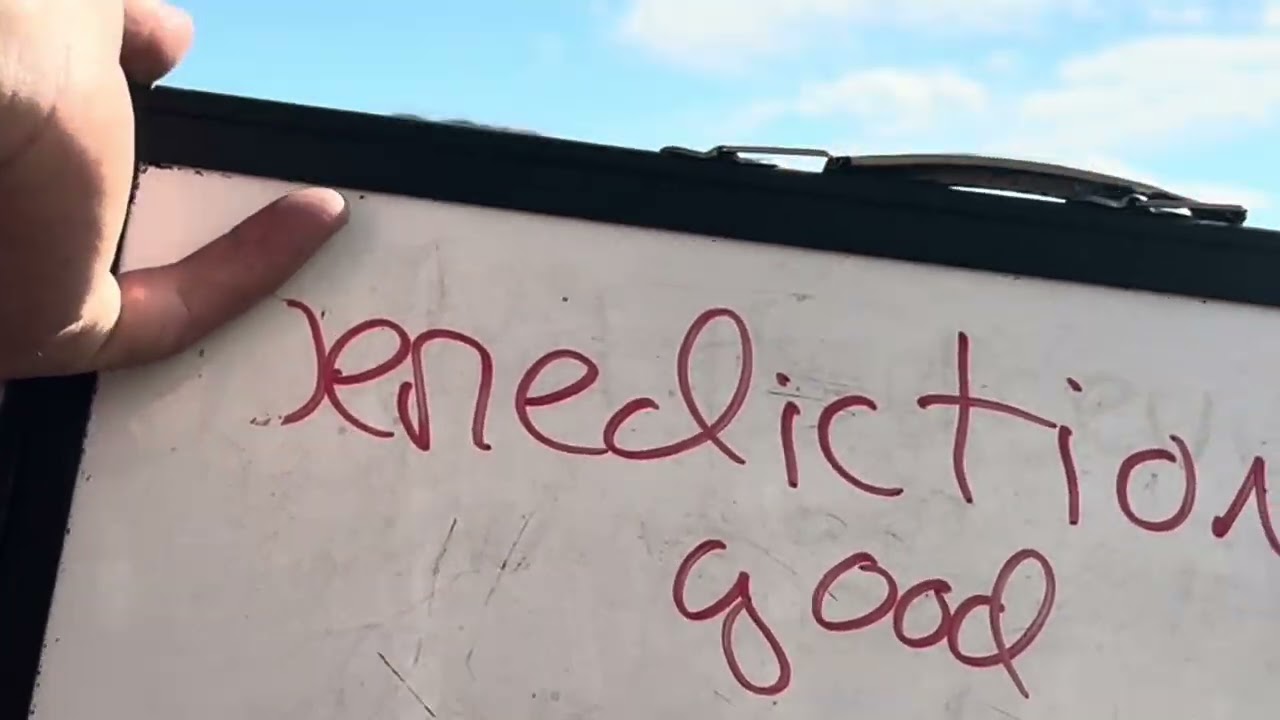 Benediction
good